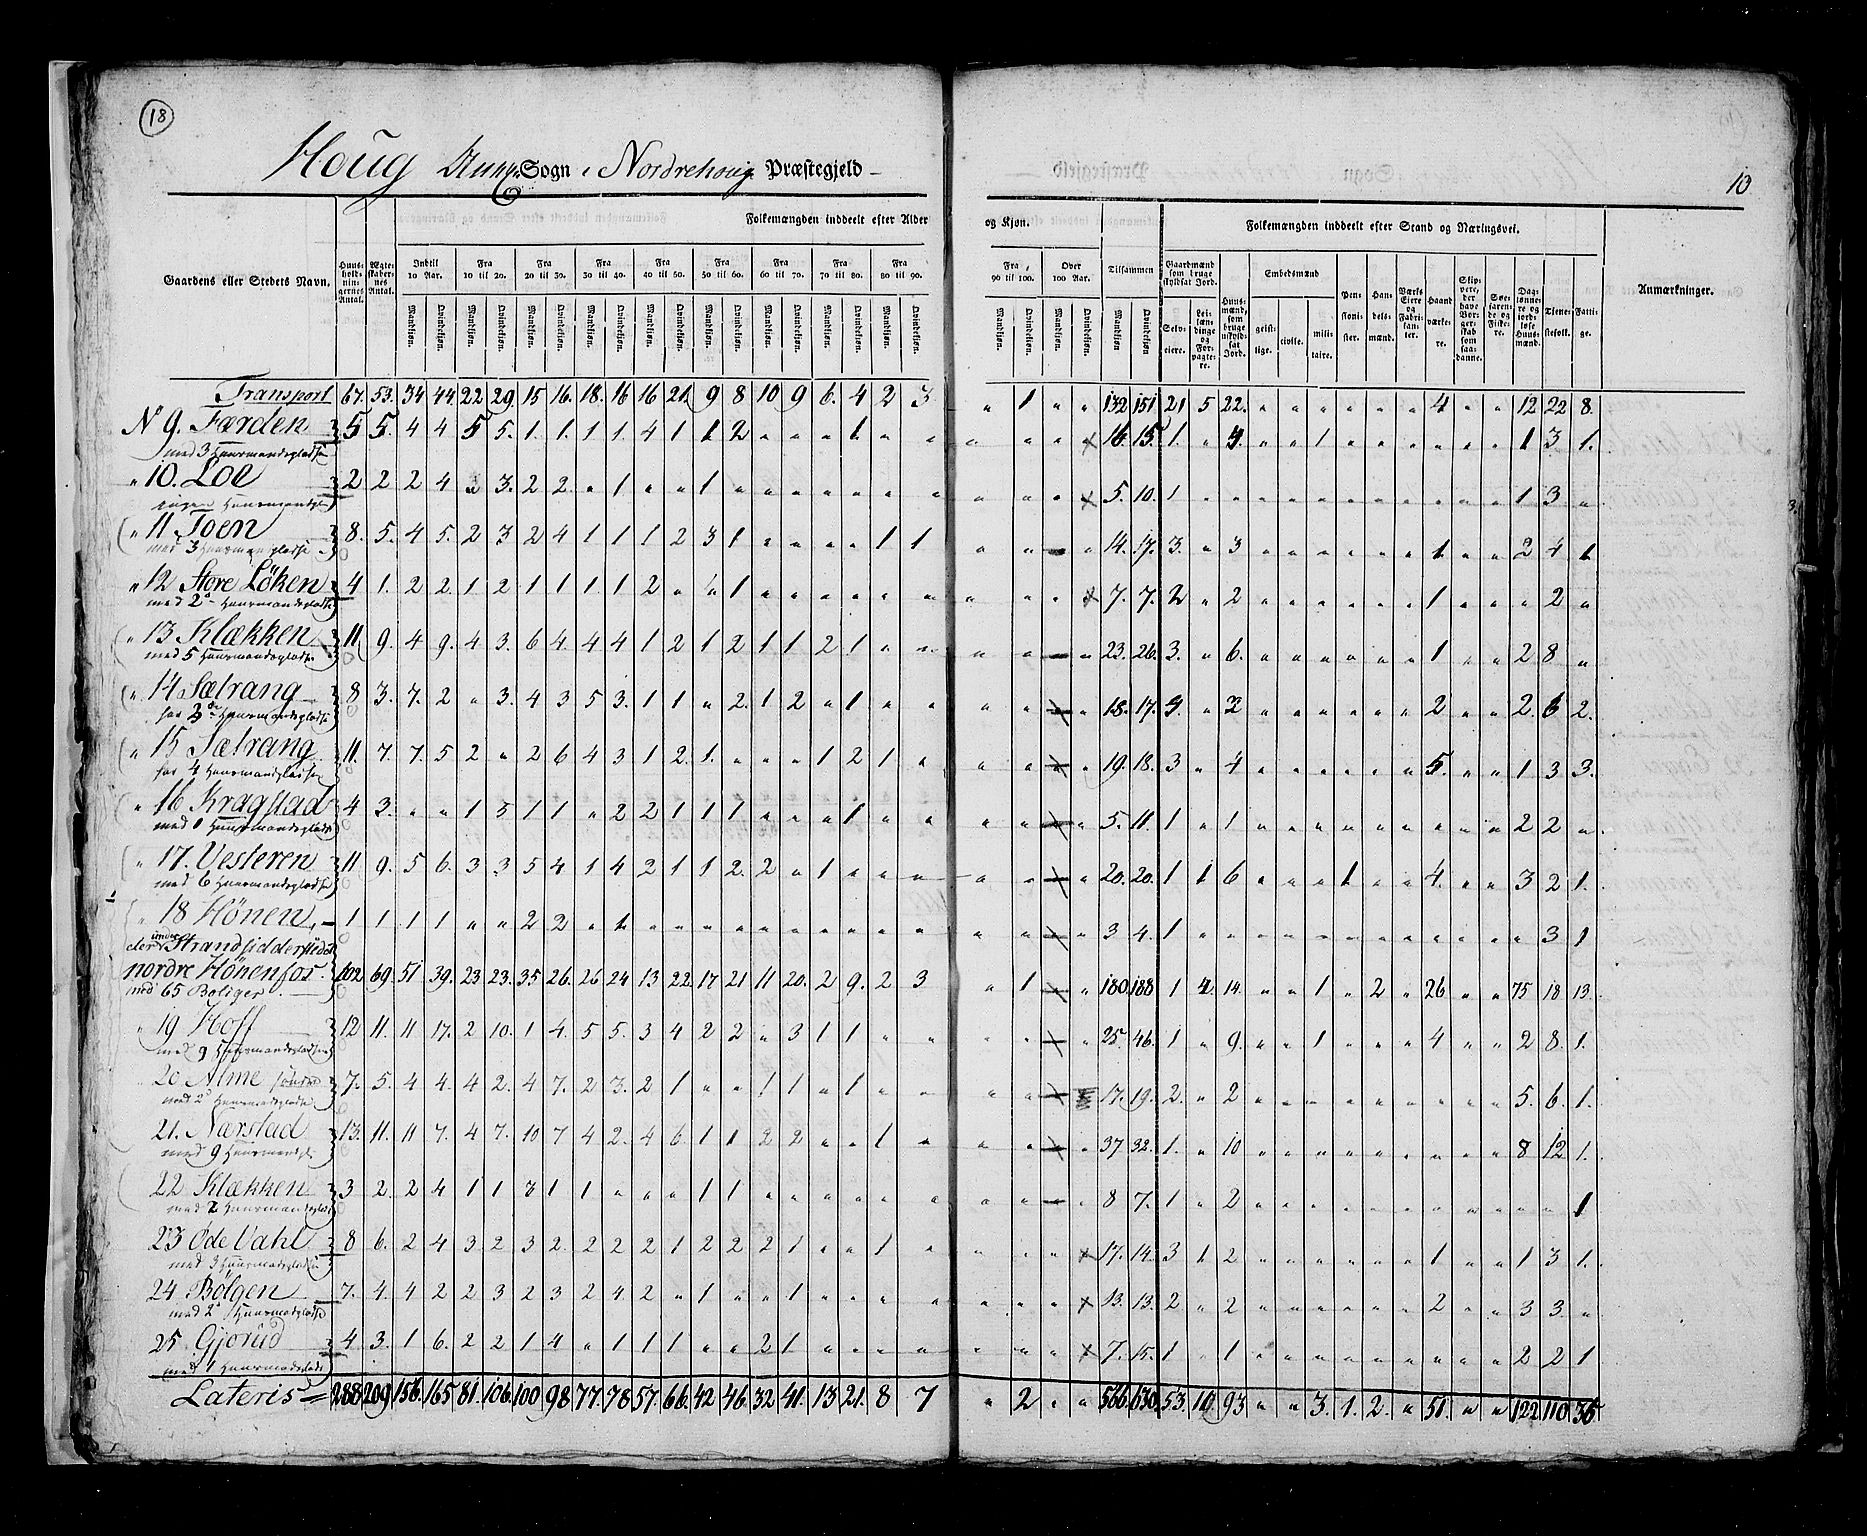 18
Houg Sogn i Nordrehoug Præstegjeld
10
Folkemængden inddeelt efter Alder og Kjøn.
Folkemængden inddeelt efter Stand og Næringsvei.
Gaardens eller Stedets Navn.
Huus-holdningernes Antal.
Ægteskabernes Antal.
Indtil 10 Aar.
Fra 10 til 20.
Fra 20 til 30.
Fra 30 til 40.
Fra 40 til 50.
Fra 50 til 60.
Fra 60 til 70.
Fra 70 til 80.
Fra 80 til 90.
Fra 90 til 100.
Over 100 Aar.
Tilsammen
Mandkjøn. Qvindekjøn.
Gaardmænd som bruge skyldsat Jord.
Selveiere.
Leilændinge og Forpagtere.
Huusmænd, som bruge uskyldsat Jord.
Embedsmænd
geistlige. civille. militaire.
Pensionister.
Handelsmænd.
Værks Eiere og Fabrikanter.
Haandværkere.
Daglønnere og jordløse Huusmænd.
Tjenestefolk.
Fattige.
Anmærkninger.
Transport 67. 53. 34 44. 22 29. 15 16. 18. 16 16 21. 9 8 10 9 6. 4 2 3 " 1 " " 132 151 21 5 22. " " " " " " 4 " " 12 22 8.
N 9. Færden 5 5. 4 4 5 5. 1. 1. 1 1. 4 1 1 2 " " " 1 " " " " " 16. 15. 1. " 4. " " 1 " " " " " " 1 3 1.
med 3 Huusmandspladse
" 10. Loe 2 2 2 4 " 3. 2 2. " 1 " " 1 " " " " " " " " " " 5. 10. 1 " " " " " " " " " " " 1 3 "
ingen Huusmandspl
" 11 Toen 8. 5. 4 5. 2 3 2 4 1 1 1 2 3 1 " " " " 1 1 " " " 14. 17. 3. " 3 " " " " " " 1 " " 2 4 1
med 3 Huusmandspladse
" 12 Store Löken 4 1. 2 2. 1 2 1 1 1 1 2 " 1 1 " " " " " " " " 7. 7. 2 " 2 " " " " " " 1 " " " 2 "
med 2 Huusmandspladse
" 13 Klækken 11 9. 4 9. 4 3. 6 4. 4 4 1 2 1 2 1 1 2 1 " " " " " 23. 26. 3. " 6. " " " " " " 1 " " 2 8 "
med 5 Huusmandspladse
" 14 Sælrang 8 3. 7. 2 " 3. 4 3 5 3. 1 1 " 2. 1 2 " 1 " " " " " 18. 17. " 2 " " " " " " 2 " " 2. 6 2.
har Huusmandspladse
" 15 Sælrang 11. 7. 7. 5 2 " 2 6 4 3 1 2. 1. " " " 1 2 1 " " " " 19. 18. 3 " 4 " " " " " " 5. " " 1 3 3.
har 4 Huusmandspladse
" 16 Kragstad 4 3. " " 1 5 1 1 " 2 2 1 1 1 " " " 1 " " " " " 5. 11. 1 " 1 " " " " " " " " " 2 2 "
med 1 Huusmandsplads
" 17. Vesteren 11 9. 5 6. 3 3. 5 4 1 4 2 1 1 2. 2 " 1 " " " " " 20. 20. 1 1 6 " " " 1 " " 4. " " 3 2 1.
med 6 Huusmandspladse
" 18 Hönen, 1 1 1 1 " " 2 2. " 1 " " " " " " " " " " " " " 3 4. 1 " " " " " " " " " " " " 3 1
under Strandsidderstedet
nordre Hönenfos. 102 69. 51 39. 23 23. 35 26. 26 24 13 22. 17 21 11 20. 2 9. 2 3 " 1 " 180 188 1 4. 14. " " 1 " 2 " 26 " " 75 18 13.
med 65 Boliger
" 19 Hoff 12 11. 11 17. 2 10. 1 4. 5 5. 3 4 2 2 " 3 1 1 " " " " " 25. 46. 1 " 9. " " 1 " " " 4 " " 2 8. 1.
med 9 Huusmandspladse
20 Alme søndre 7. 5. 4 4. 4 2. 4 7. 2 3. 2 1 " " 1 1 " 1 " " " " 17. 19. 2. " 2 " " " " " " " " " 5. 6. 1.
med 2 Huusmandspladse
21. Nærstad 13. 11. 11 7. 4 7. 10 7 4 2. 4 6. 1 1 2 2 " " 1 " " " " 37. 32. 1. " 10 " " " " " " " " " 8 12 1.
med 9 Huusmandspl
22 Klækken 3 2. 2 4 1 1 3 1 1 " " " 1 1 " " " " " " " " " 8 7. 1 " 2 " " " " " " " " " " " 1
med 2 Huusmandspladse
23 Ode Vahl 8 6. 2 4 3 2 3 2. 2 2 2 1 2 2 2 1 " " 1 " " " " 17. 14. 3 1 2 " " " " " " 1 " " 1 3 1.
med 3 Huusmandspladse
24 Bölgen 7. 4. 4 2 2 3 2 3 2 4 2 " 1 " " 1 " " " " " " " 13. 13. 2 " 2 " " " " " " 2 " " 3 3. "
med 2 Huusmandspladse
25 Gjorud 4 3. 1 6. 2 2 1 4 " 1 1 1 " " 2 1 " " " " " " " 7. 15. 1 " 1 " " " " " " " " " 2 2 1
med 1 Huusmandsplads
Lateris 288 209. 156. 165 81. 106. 100 98 77. 78 57. 66. 42 46. 32 41. 13 21. 8 7 " 2 " " 566. 630. 53. 11. 93 " " 3. 1. 2. " 51. " " 122 110 35